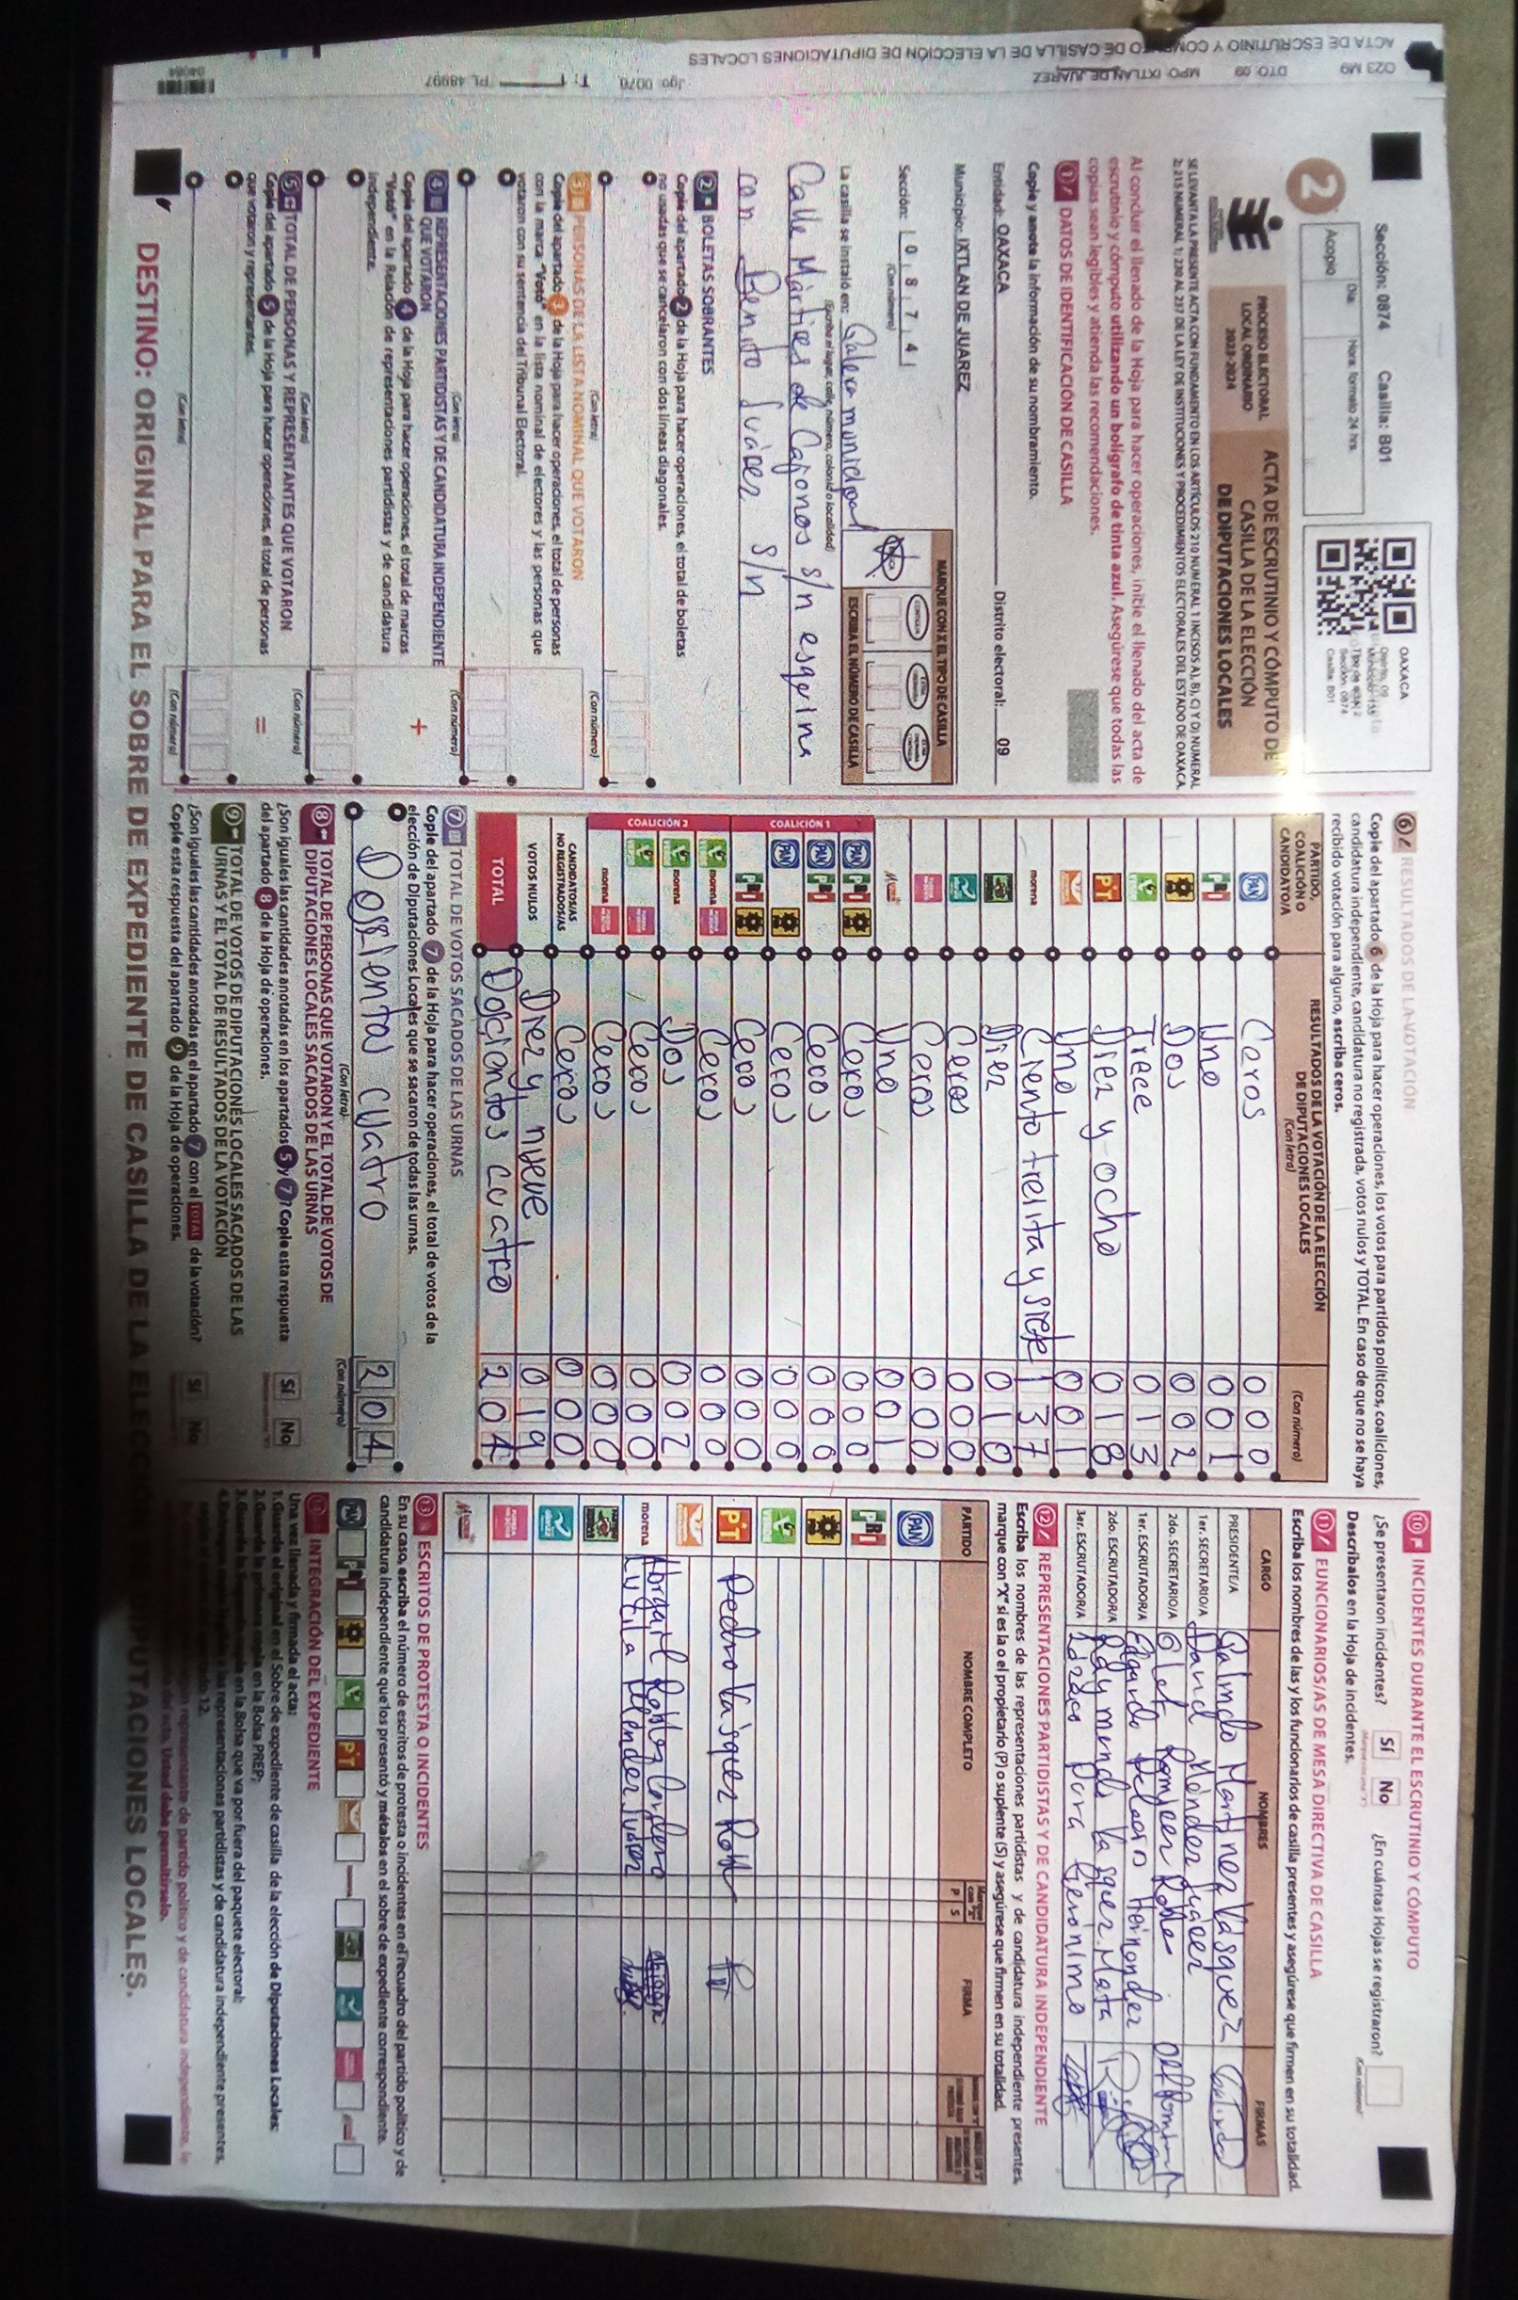 O23 M9 DTO: 09 MPO: IXTLAN DE JUAREZ Jgo: 0070 T: 1 PL: 48997
ACTA DE ESCRUTINIO Y CÓMPUTO DE CASILLA DE LA ELECCIÓN DE DIPUTACIONES LOCALES
Sección: 0874 Casilla: B01
2
Día: Hora: formato 24 hrs.
Acopio
OAXACA
Distrito: 09
Sección: 0874
Casilla: B01
PROCESO ELECTORAL
LOCAL ORDINARIO
2023-2024
ACTA DE ESCRUTINIO Y CÓMPUTO DE
CASILLA DE LA ELECCIÓN
DE DIPUTACIONES LOCALES
SE LEVANTA LA PRESENTE ACTA CON FUNDAMENTO EN LOS ARTÍCULOS 210 NUMERAL 1 INCISOS A), B), C) Y D) NUMERAL
2; 215 NUMERAL 1; 230 AL 237 DE LA LEY DE INSTITUCIONES Y PROCEDIMIENTOS ELECTORALES DEL ESTADO DE OAXACA.
Al concluir el llenado de la Hoja para hacer operaciones, inicie el llenado del acta de
escrutinio y cómputo utilizando un bolígrafo de tinta azul. Asegúrese que todas las
copias sean legibles y atienda las recomendaciones.
1 DATOS DE IDENTIFICACIÓN DE CASILLA
Copie y anote la información de su nombramiento.
Entidad: OAXACA Distrito electoral: 09
Municipio: IXTLAN DE JUAREZ
Sección: 0 8 7 4
(Con número)
MARQUE CON X EL TIPO DE CASILLA
ESCRIBA EL NÚMERO DE CASILLA
La casilla se instaló en: Galera municipal
(Escriba el lugar, calle, número, colonia o localidad)
Calle Mártires de Cajonos s/n esquina
con Benito Juárez s/n
2 BOLETAS SOBRANTES
Copie del apartado 2 de la Hoja para hacer operaciones, el total de boletas
no usadas que se cancelaron con dos líneas diagonales.
(Con letra) (Con número)
3 PERSONAS DE LA LISTA NOMINAL QUE VOTARON
Copie del apartado 3 de la Hoja para hacer operaciones, el total de personas
con la marca "Votó" en la lista nominal de electores y las personas que
votaron con su sentencia del Tribunal Electoral.
(Con letra) (Con número)
4 REPRESENTACIONES PARTIDISTAS Y DE CANDIDATURA INDEPENDIENTE
QUE VOTARON
Copie del apartado 4 de la Hoja para hacer operaciones, el total de marcas
"Votó" en la Relación de representaciones partidistas y de candidatura
independiente.
+
(Con letra) (Con número)
5 TOTAL DE PERSONAS Y REPRESENTANTES QUE VOTARON
Copie del apartado 5 de la Hoja para hacer operaciones, el total de personas
que votaron y representantes.
=
(Con letra) (Con número)
6 RESULTADOS DE LA VOTACIÓN
Copie del apartado 6 de la Hoja para hacer operaciones, los votos para partidos políticos, coaliciones,
candidatura independiente, candidatura no registrada, votos nulos y TOTAL. En caso de que no se haya
recibido votación para alguno, escriba ceros.
PARTIDO, COALICIÓN O CANDIDATO/A RESULTADOS DE LA VOTACIÓN DE LA ELECCIÓN DE DIPUTACIONES LOCALES (Con letra) (Con número)
PAN Ceros 0 0 0
PRI Uno 0 0 1
PRD Dos 0 0 2
VERDE Trece 0 1 3
PT Diez y ocho 0 1 8
Uno 0 0 1
morena Ciento treinta y siete 1 3 7
Diez 0 1 0
Ceros 0 0 0
Ceros 0 0 0
Uno 0 0 1
COALICIÓN 1
PAN PRI PRD Ceros 0 0 0
PAN PRI Ceros 0 0 0
PAN PRD Ceros 0 0 0
PRI PRD Ceros 0 0 0
COALICIÓN 2
VERDE morena Ceros 0 0 0
VERDE morena Dos 0 0 2
VERDE Ceros 0 0 0
morena Ceros 0 0 0
CANDIDATOS/AS NO REGISTRADOS/AS Ceros 0 0 0
VOTOS NULOS Diez y nueve 0 1 9
TOTAL Doscientos cuatro 2 0 4
7 TOTAL DE VOTOS SACADOS DE LAS URNAS
Copie del apartado 7 de la Hoja para hacer operaciones, el total de votos de la
elección de Diputaciones Locales que se sacaron de todas las urnas.
Dossientos cuatro 2 0 4
(Con letra) (Con número)
8 TOTAL DE PERSONAS QUE VOTARON Y EL TOTAL DE VOTOS DE
DIPUTACIONES LOCALES SACADOS DE LAS URNAS
¿Son iguales las cantidades anotadas en los apartados 5 y 7? Copie esta respuesta
del apartado 8 de la Hoja de operaciones.
Sí No
9 TOTAL DE VOTOS DE DIPUTACIONES LOCALES SACADOS DE LAS
URNAS Y EL TOTAL DE RESULTADOS DE LA VOTACIÓN
¿Son iguales las cantidades anotadas en el apartado 7 con el TOTAL de la votación?
Copie esta respuesta del apartado 9 de la Hoja de operaciones.
Sí No
10 INCIDENTES DURANTE EL ESCRUTINIO Y CÓMPUTO
¿Se presentaron incidentes? Sí No ¿En cuántas Hojas se registraron?
Descríbalos en la Hoja de incidentes.
11 FUNCIONARIOS/AS DE MESA DIRECTIVA DE CASILLA
Escriba los nombres de las y los funcionarios de casilla presentes y asegúrese que firmen en su totalidad.
CARGO NOMBRES FIRMAS
PRESIDENTE/A Galindo Martínez Vásquez
1er. SECRETARIO/A David Méndez Juárez
2do. SECRETARIO/A Olet Ramirez Robles
1er. ESCRUTADOR/A Edgardo Pelaez Hernandez
2do. ESCRUTADOR/A Raymundo Vasquez Mata
3er. ESCRUTADOR/A Lazaro Geronimo
12 REPRESENTACIONES PARTIDISTAS Y DE CANDIDATURA INDEPENDIENTE
Escriba los nombres de las representaciones partidistas y de candidatura independiente presentes,
marque con "X" si es la o el propietario (P) o suplente (S) y asegúrese que firmen en su totalidad.
PARTIDO NOMBRE COMPLETO P S FIRMA
PAN
PRI
PRD
VERDE
PT Pedro Vásquez
morena Abigail Robles Cordero
Lucila Melendez Juárez
13 ESCRITOS DE PROTESTA O INCIDENTES
En su caso, escriba el número de escritos de protesta o incidentes en el recuadro del partido político y de
candidatura independiente que los presentó y métalos en el sobre de expediente correspondiente.
INTEGRACIÓN DEL EXPEDIENTE
Una vez llenada y firmada el acta:
1. Guarde el original en el Sobre de expediente de casilla de la elección de Diputaciones Locales;
DESTINO: ORIGINAL PARA EL SOBRE DE EXPEDIENTE DE CASILLA DE LA ELECCIÓN DE DIPUTACIONES LOCALES.